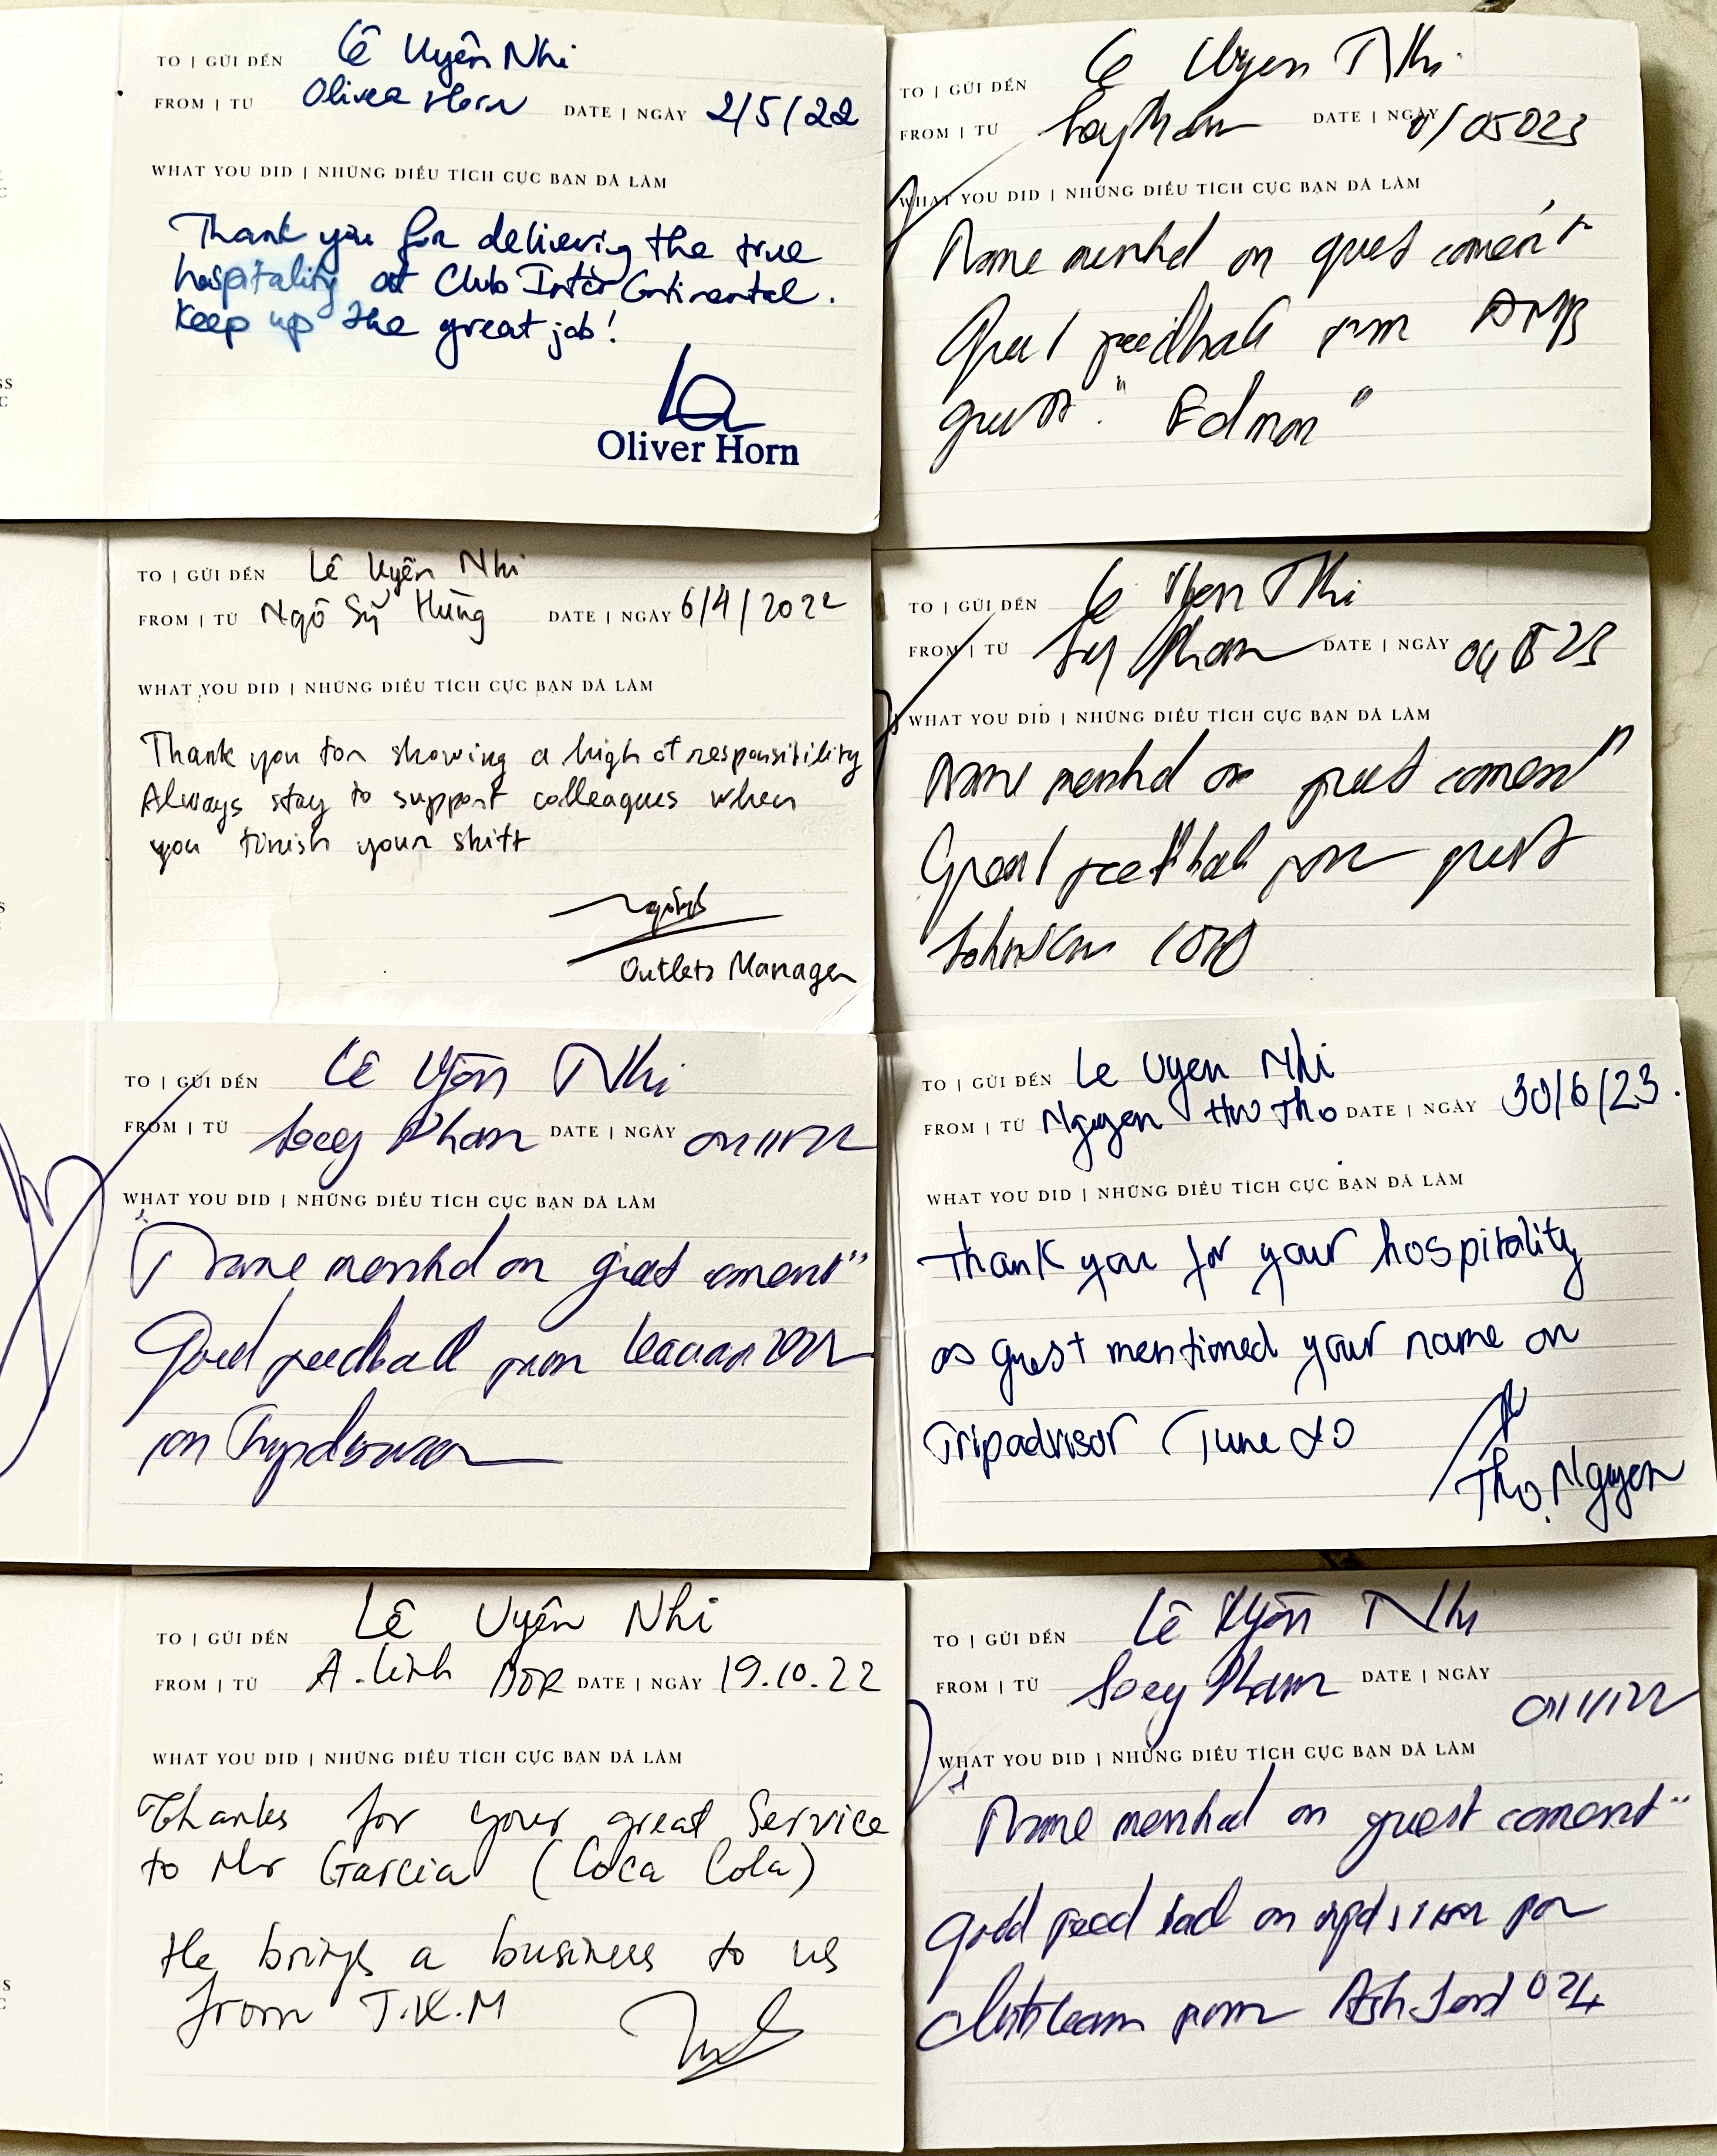 TO | GỬI ĐẾN Lê Uyên Nhi
FROM | TỪ Oliver Horn DATE | NGÀY 2/5/22
WHAT YOU DID | NHỮNG ĐIỀU TÍCH CỰC BẠN ĐÃ LÀM
Thank you for delivering the true
hospitality at Club InterContinental.
Keep up the great job!
Oliver Horn
TO | GỬI ĐẾN Le Uyen Nhi
FROM | TỪ DATE | NGÀY
WHAT YOU DID | NHỮNG ĐIỀU TÍCH CỰC BẠN ĐÃ LÀM
Name on guest coment
Great feedback from
guest "Edman"
TO | GỬI ĐẾN Lê Uyên Nhi
FROM | TỪ Ngô Sỹ Hùng DATE | NGÀY 6/4/2022
WHAT YOU DID | NHỮNG ĐIỀU TÍCH CỰC BẠN ĐÃ LÀM
Thank you for showing a high of responsibility
Always stay to support colleagues when
you finish your shift
Outlets Manager
TO | GỬI ĐẾN Le Uyen Nhi
FROM | TỪ Pham DATE | NGÀY
WHAT YOU DID | NHỮNG ĐIỀU TÍCH CỰC BẠN ĐÃ LÀM
Name on guest coment"
Great feedback from guest
Johnson
TO | GỬI ĐẾN Lê Uyên Nhi
FROM | TỪ Pham DATE | NGÀY
WHAT YOU DID | NHỮNG ĐIỀU TÍCH CỰC BẠN ĐÃ LÀM
"Name on guest coment"
Good feedback from
on
TO | GỬI ĐẾN Le Uyen Nhi
FROM | TỪ Nguyen Huu Tho DATE | NGÀY 30/6/23.
WHAT YOU DID | NHỮNG ĐIỀU TÍCH CỰC BẠN ĐÃ LÀM
Thank you for your hospitality
as guest mentioned your name on
Tripadvisor (June
Thọ Nguyen
TO | GỬI ĐẾN Lê Uyên Nhi
FROM | TỪ A. Linh DOR DATE | NGÀY 19.10.22
WHAT YOU DID | NHỮNG ĐIỀU TÍCH CỰC BẠN ĐÃ LÀM
Thanks for your great Service
to Mr Garcia (Coca Cola)
He brings a business to us
from T.K.M
TO | GỬI ĐẾN Lê Uyên Nhi
FROM | TỪ Pham DATE | NGÀY
WHAT YOU DID | NHỮNG ĐIỀU TÍCH CỰC BẠN ĐÃ LÀM
"Name on guest coment"
Good feed back on for
from